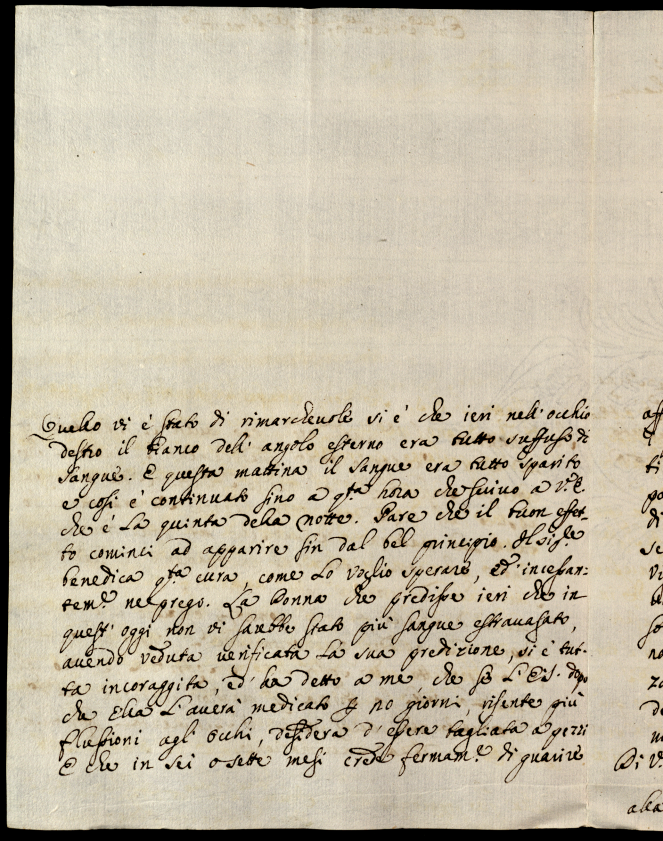 Quello vi è stato di rimarchevole si è che ieri nell' occhio
destro il bianco dell' angolo esterno era tutto suffuso di
sangue. E questa mattina il sangue era tutto sparito
e così è continuato sino a qta hora che scrivo a V. E.
che è la quinta della notte. Pare che il buon effet-
to cominci ad apparire sin dal bel principio. Il Sigre
benedica qta cura, come lo voglio sperare, ed' incessan:
temte ne prego. La Donna che predisse ieri che in
quest' oggi non vi sarebbe stato più sangue estravasato,
avendo veduta verificata la sua predizione, si è tut-
ta incoraggita, ed' ha detto a me che se L'E. S. dopo
che Ella L'averà medicato no giorni, risente più
flussioni agl' occhi, desidera d' essere tagliata a pezzi
E che in sei o sette mesi crede fermamte di guarire